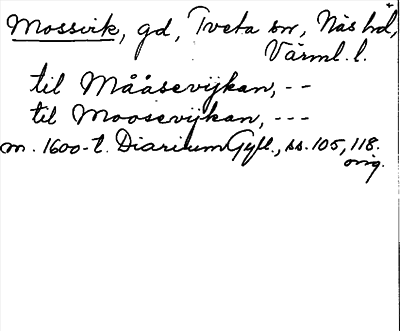 Mossvik, gd, Tveta sn, Näs hd,
Värml. l.
til Mååsevijkan, --
til Moosevijkan, ---
m. 1600-t. Diarium Gyll., ss. 105, 118.
orig.